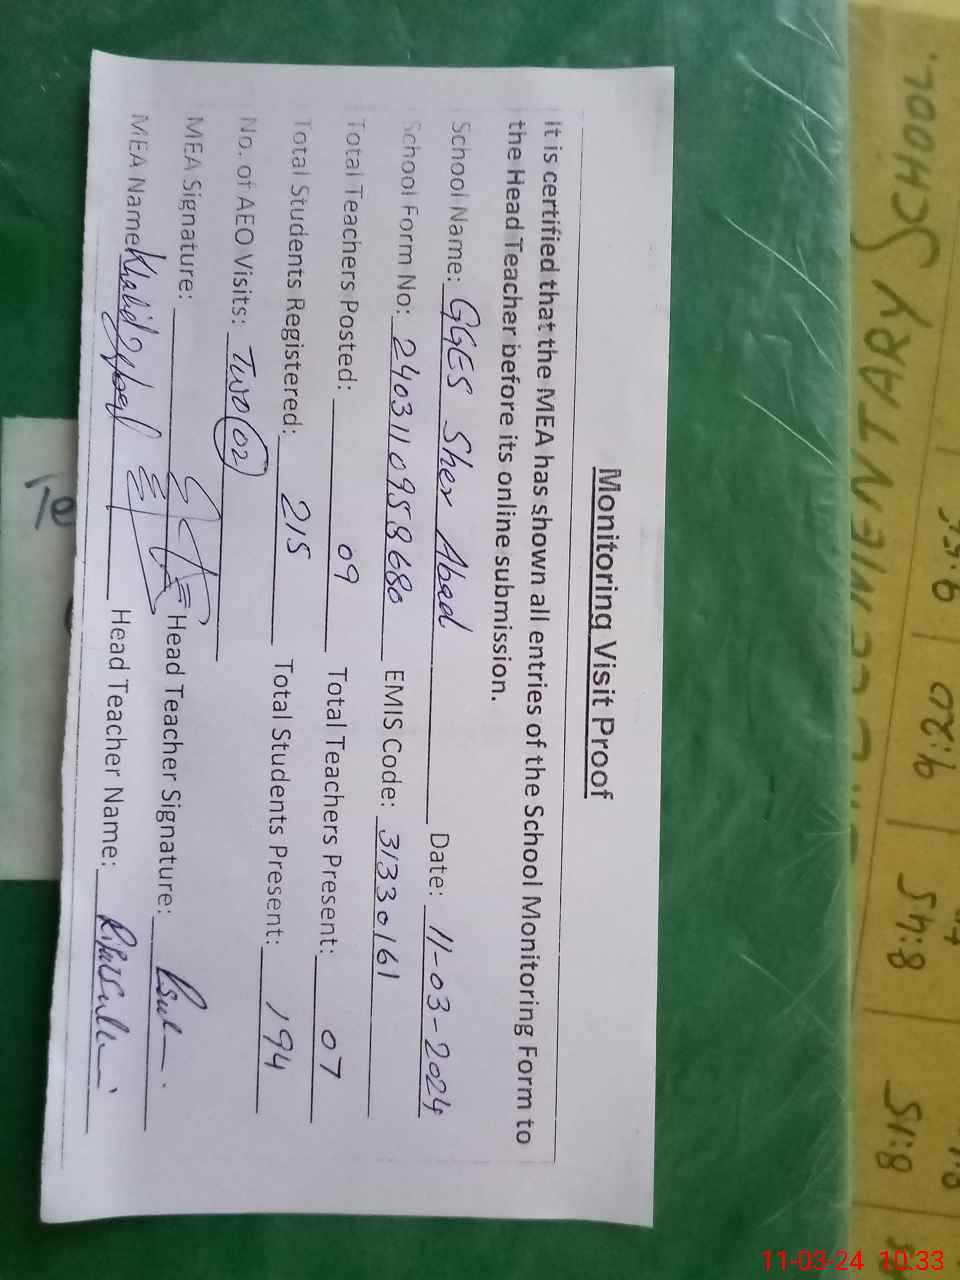 Monitoring Visit Proof
It is certified that the MEA has shown all entries of the School Monitoring Form to
the Head Teacher before its online submission.
School Name: GGES Sher Abad Date: 11-03-2024
School Form No: 240311095868​0 EMIS Code: 31330161
Total Teachers Posted: 09 Total Teachers Present: 07
Total Students Registered: 215 Total Students Present: 194
No. of AEO Visits: Two (02)
MEA Signature: Head Teacher Signature:
MEA Name: Khalid Head Teacher Name:
SCHOOL.
9:20 8:45 8:15
11-03-24 10:33